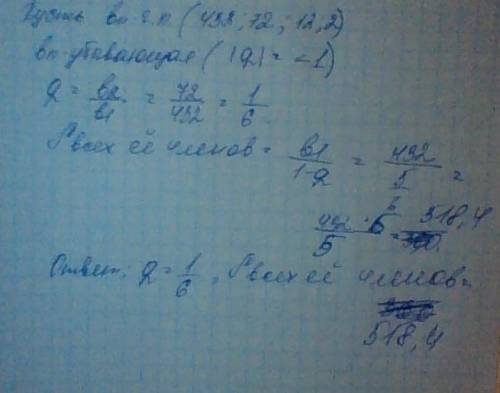 Пусть bn - г.п. (432; 72; 12, 2)
bn - убывающая (|q| = < 1)
q = b2/b1 = 72/432 = 1/6
S всех её членов = b1/(1-q) = 432/(5/6) =
432 · 6 / 5 = 518,4
Ответ: q = 1/6, S всех её членов =
518,4